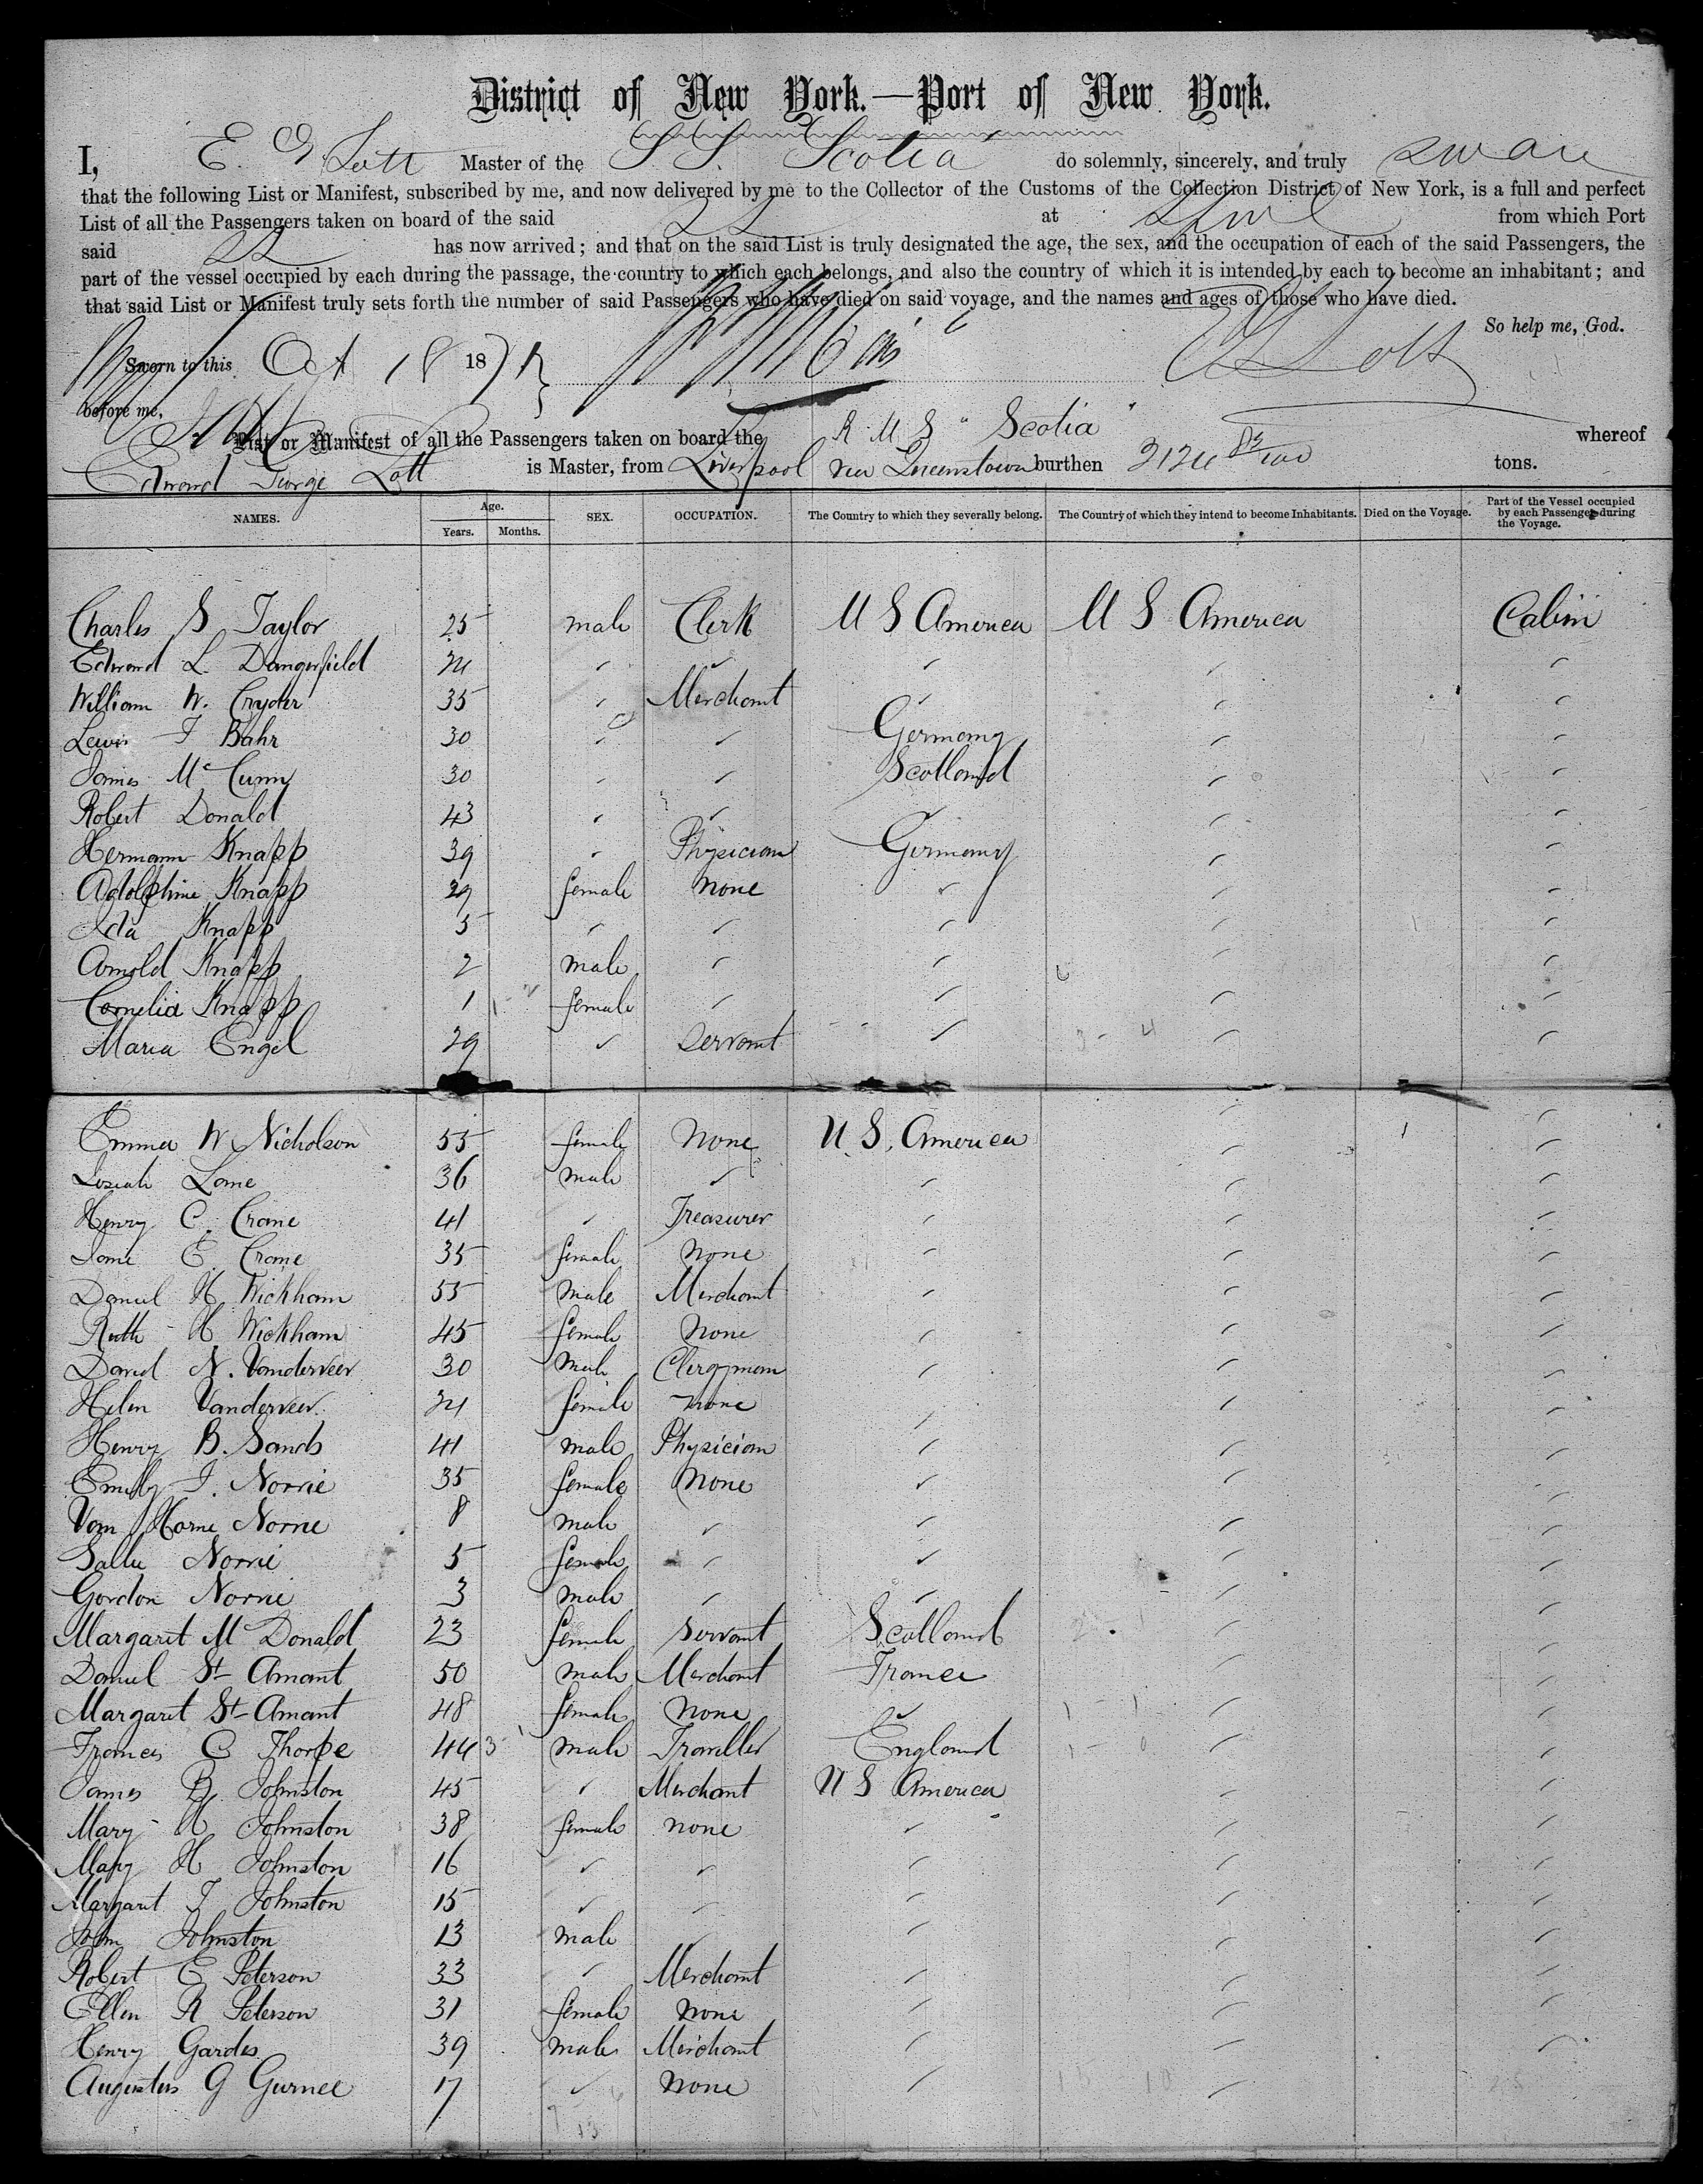 District of New York.—Port of New York.
I, E. G. Lott Master of the S S. Scotia do solemnly, sincerely, and truly swear
that the following List or Manifest, subscribed by me, and now delivered by me to the Collector of the Customs of the Collection District of New York, is a full and perfect
List of all the Passengers taken on board of the said SS at from which Port
said SS has now arrived; and that on the said List is truly designated the age, the sex, and the occupation of each of the said Passengers, the
part of the vessel occupied by each during the passage, the country to which each belongs, and also the country of which it is intended by each to become an inhabitant; and
that said List or Manifest truly sets forth the number of said Passengers who have died on said voyage, and the names and ages of those who have died.
So help me, God.
Sworn to this Oct 18 187 E G Lott
before me,
List or Manifest of all the Passengers taken on board the R M S "Scotia" whereof
Edward George Lott is Master, from Liverpool via Queenstown burthen tons.
NAMES. Age. Years. Months. SEX. OCCUPATION. The Country to which they severally belong. The Country of which they intend to become Inhabitants. Died on the Voyage. Part of the Vessel occupied by each Passenger during the Voyage.
Charles S Taylor 25 male Clerk U S America U S America Cabin
Edward L Dangerfield 24 " " " " "
William W. Cryder 35 " Merchant " " "
Lewis F Bahr 30 " " Germany " "
James Mc Cunn 30 " " Scotland " "
Robert Donald 43 " " " "
Hermann Knapp 39 " Physician Germany " "
Adolphine Knapp 29 female none " " "
Ida Knapp 5 " " " " "
Arnold Knapp 2 male " " " "
Cornelia Knapp 1 female " " " "
Maria Engel 29 " Servant " " "
Emma W Nicholson 55 female None U. S. America " "
Josiah Lane 36 male " " " "
Henry C. Crane 41 " Treasurer " " "
Jane E. Crane 35 female none " " "
Daniel H Wickham 55 male Merchant " " "
Ruth H Wickham 45 female None " " "
David N. Vanderveer 30 male Clergyman " " "
Helen Vanderveer 24 female none " " "
Henry B. Sands 41 male Physician " " "
Emily F. Norrie 35 female None " " "
Van Horne Norrie 8 male " " " "
Sallie Norrie 5 female " " " "
Gordon Norrie 3 male " " " "
Margaret Mc Donald 23 female Servant Scotland " "
Daniel St Amant 50 male Merchant France " "
Margaret St Amant 48 female None " " "
Francis C Thorpe 44 male Traveller England " "
James B Johnston 45 " Merchant U S America " "
Mary H Johnston 38 female none " " "
Mary H Johnston 16 " " " " "
Margaret F Johnston 15 " " " " "
John Johnston 13 male " " " "
Robert E Peterson 33 " Merchant " " "
Ellen R Peterson 31 female none " " "
Henry Gardes 39 male Merchant " " "
Augustus G Gurnee 17 " None " "